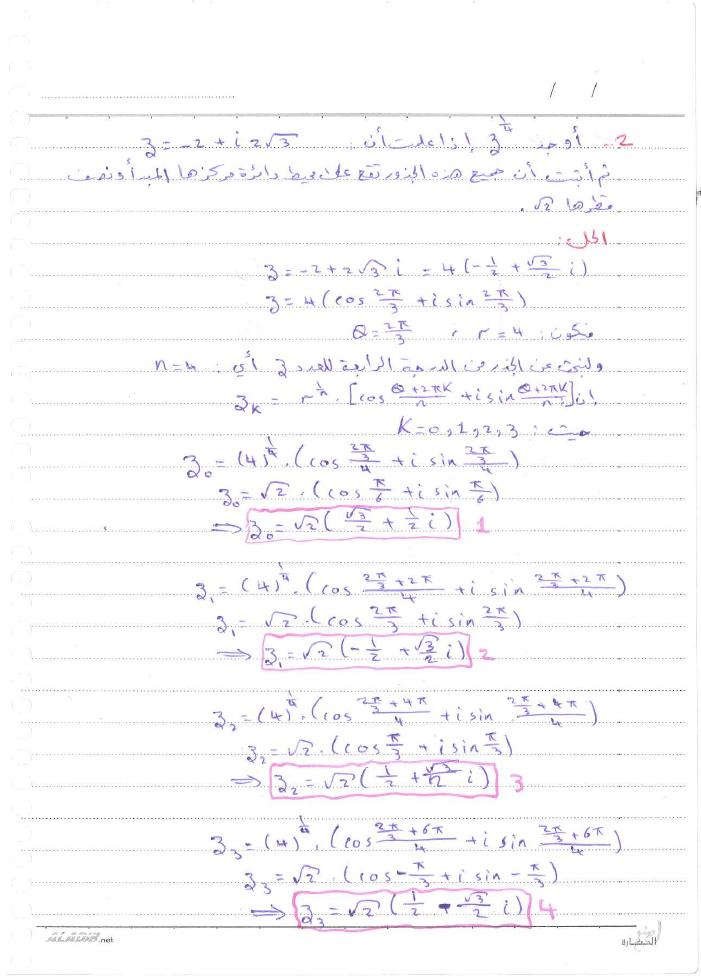 / /
2- أوجد z^(1/4) إذا علمت أن: z = -2 + i 2√3
ثم أثبت أن جميع هذه الجذور تقع على محيط دائرة مركزها المبدأ ونصف
قطرها √2.
الحل:
z = -2 + 2√3 i = 4(-1/2 + √3/2 i)
z = 4(cos 2π/3 + i sin 2π/3)
فتكون: r = 4 ، θ = 2π/3
ولنبحث عن الجذر من الدرجة الرابعة للعدد z أي: n = 4
إن z_K = r^(1/n) · [cos (θ+2πK)/n + i sin (θ+2πK)/n]
حيث: K = 0, 1, 2, 3
z₀ = (4)^(1/4) · (cos (2π/3)/4 + i sin (2π/3)/4)
z₀ = √2 · (cos π/6 + i sin π/6)
⇒ z₀ = √2(√3/2 + 1/2 i) 1
z₁ = (4)^(1/4) · (cos (2π/3 + 2π)/4 + i sin (2π/3 + 2π)/4)
z₁ = √2 · (cos 2π/3 + i sin 2π/3)
⇒ z₁ = √2(-1/2 + √3/2 i) 2
z₂ = (4)^(1/4) · (cos (2π/3 + 4π)/4 + i sin (2π/3 + 4π)/4)
z₂ = √2 · (cos π/3 + i sin π/3)
⇒ z₂ = √2(1/2 + √3/2 i) 3
z₃ = (4)^(1/4) · (cos (2π/3 + 6π)/4 + i sin (2π/3 + 6π)/4)
z₃ = √2 · (cos -π/3 + i sin -π/3)
⇒ z₃ = √2(1/2 - √3/2 i) 4
ALADIB.net
الحضارة